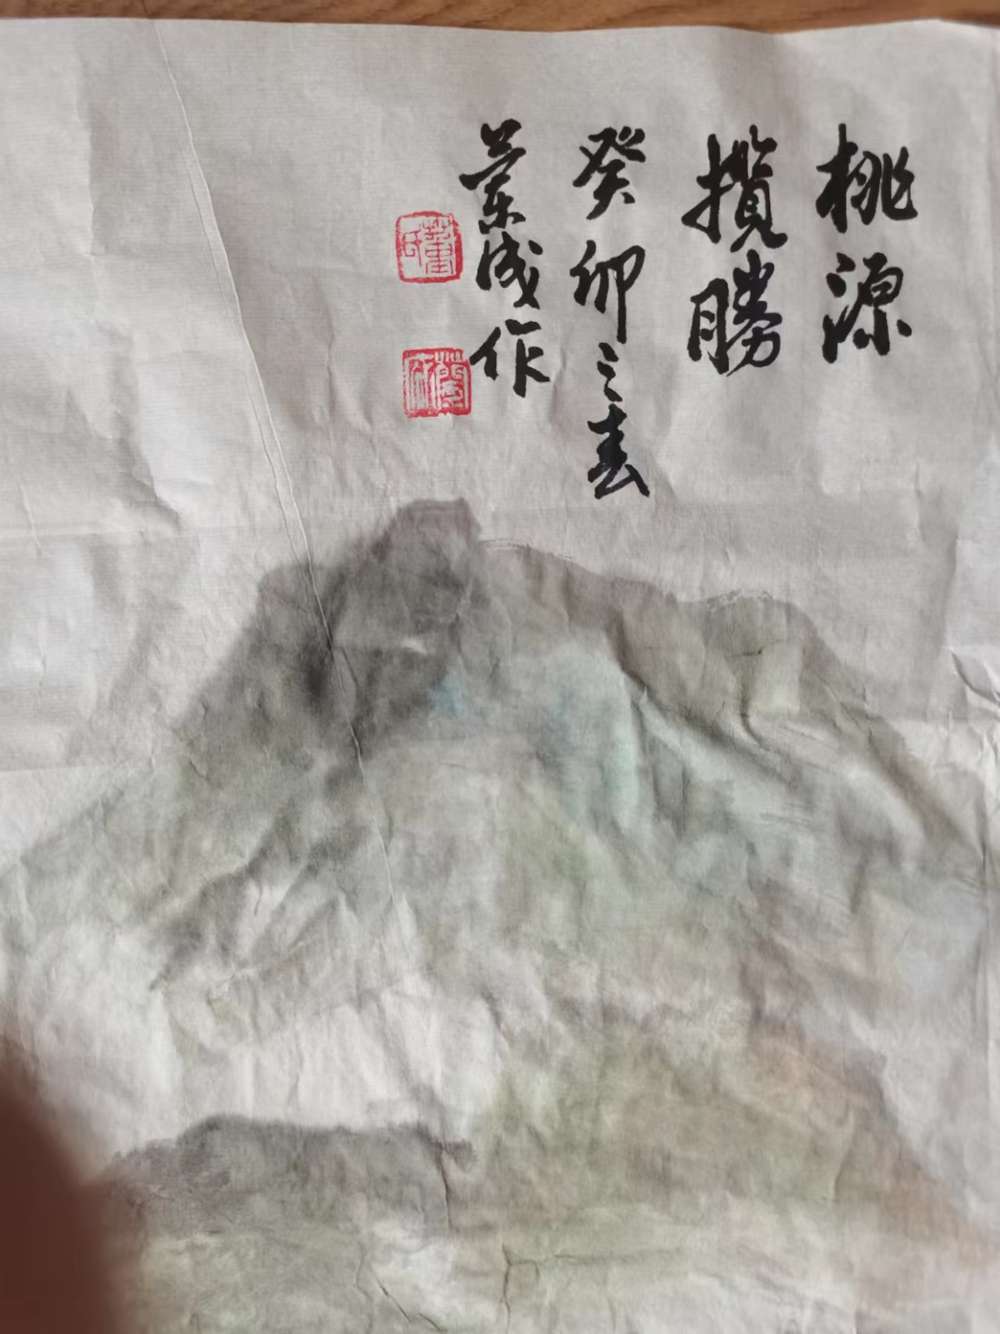 桃源
攬勝
癸卯之春
成作